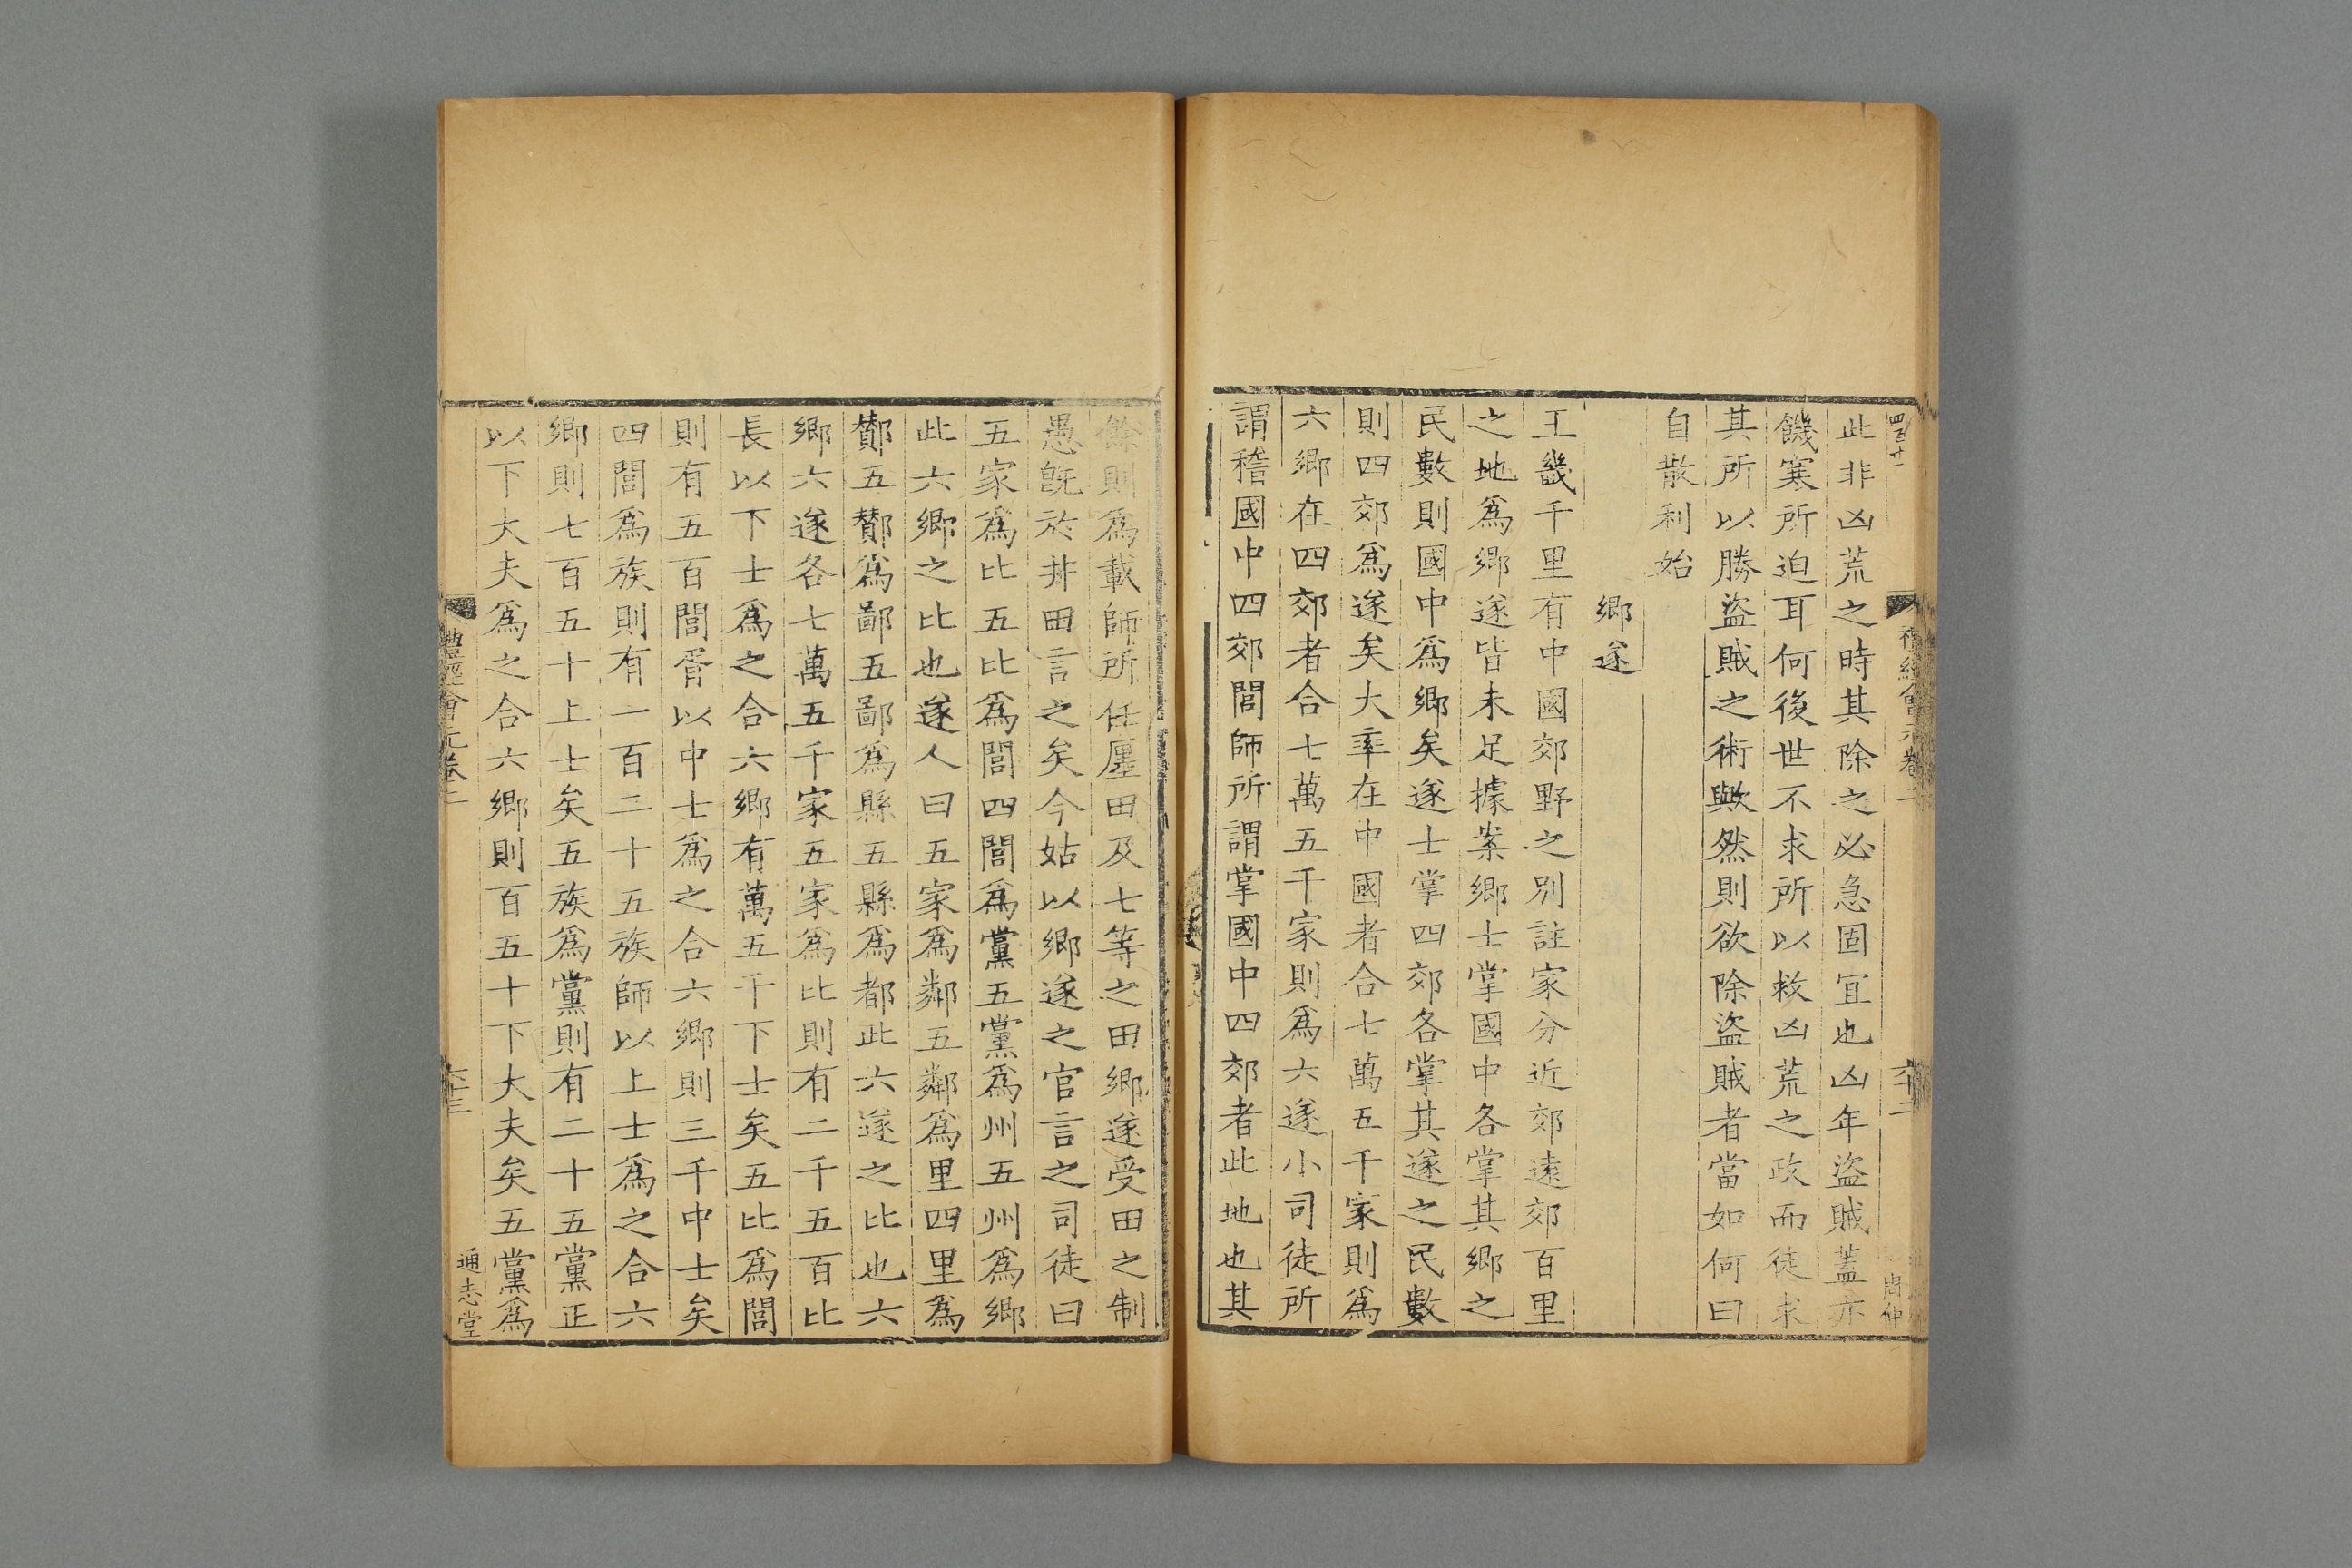 四百十一
禮經會元卷二
六十二
周仲
此非凶荒之時其除之必急固宜也凶年盜賊蓋亦
饑寒所迫耳何後世不求所以救凶荒之政而徒求
其所以勝盜賊之術歟然則欲除盜賊者當如何曰
自散利始
鄉遂
王畿千里有中國郊野之別註家分近郊遠郊百里
之地爲鄉遂皆未足據案鄉士掌國中各掌其鄉之
民數則國中爲鄉矣遂士掌四郊各掌其遂之民數
則四郊爲遂矣大率在中國者合七萬五千家則爲
六鄉在四郊者合七萬五千家則爲六遂小司徒所
謂稽國中四郊閭師所謂掌國中四郊者此地也其
餘則爲載師所任廛田及七等之田鄉遂受田之制
愚旣於井田言之矣今姑以鄉遂之官言之司徒曰
五家爲比五比爲閭四閭爲黨五黨爲州五州爲鄉
此六鄉之比也遂人曰五家爲鄰五鄰爲里四里爲
酇五酇爲鄙五鄙爲縣五縣爲都此六遂之比也六
鄉六遂各七萬五千家五家爲比則有二千五百比
長以下士爲之合六鄉有萬五千下士矣五比爲閭
則有五百閭胥以中士爲之合六鄉則三千中士矣
四閭爲族則有一百二十五族師以上士爲之合六
鄉則七百五十上士矣五族爲黨則有二十五黨正
以下大夫爲之合六鄉則百五十下大夫矣五黨爲
禮經會元卷二
六十三
通志堂